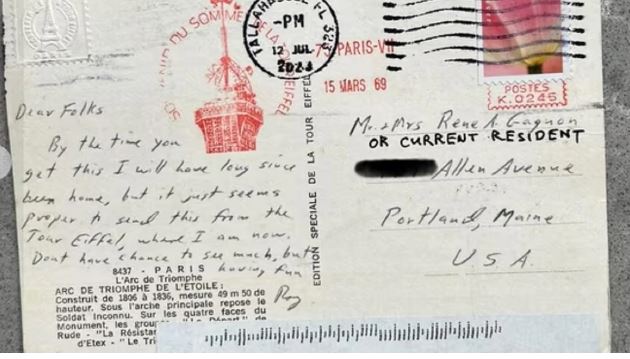 SOUVENIR DU SOMMET
DE LA TOUR EIFFEL
TALLAHASSEE FL 323
-PM
12 JUL
2023
75 PARIS-VII
15 MARS 69
POSTES
K.0245
Dear Folks
By the time you
get this I will have long since
been home, but it just seems
proper to send this from the
Tour Eiffel, where I am now.
Dont have chance to see much, but
having fun
Roy
8437 - PARIS
L'Arc de Triomphe
ARC DE TRIOMPHE DE L'ÉTOILE :
Construit de 1806 à 1836, mesure 49 m 50 de
hauteur. Sous l'arche principale repose le
Soldat Inconnu. Sur les quatre faces du
Monument, les groupes "Le Départ" de
Rude - "La Résistan
d'Etex - "Le Tri
EDITION SPECIALE DE LA TOUR EIFFEL
Mr. & Mrs Rene A. Gagnon
OR CURRENT RESIDENT
Allen Avenue
Portland, Maine
U.S.A.